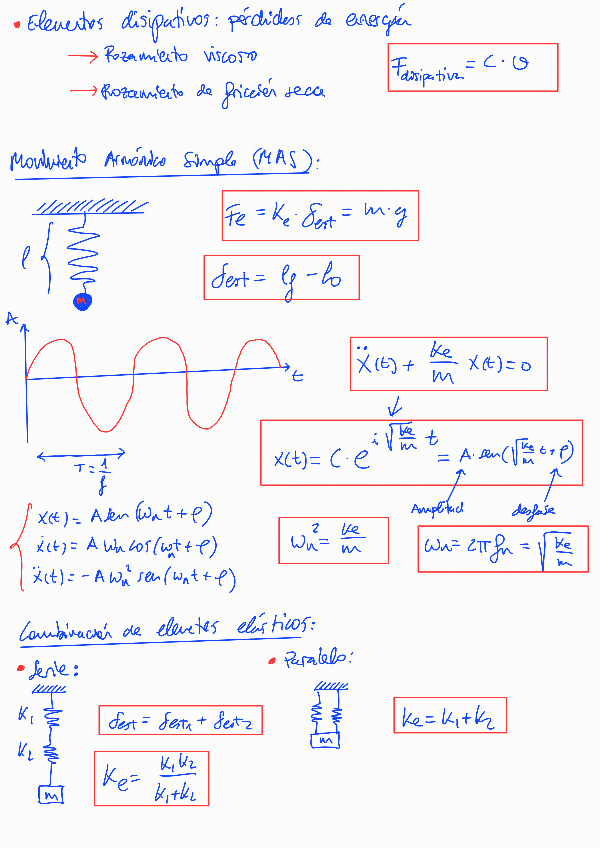 • Elementos disipativos: pérdidas de energía
→ Rozamiento viscoso
F disipativa = C · v
→ Rozamiento de fricción seca
Movimiento Armónico Simple (MAS):
Fe = Ke · δest = m · g
l
m
δest = lf - l0
A
t
T = 1/f
ẍ(t) + ke/m x(t) = 0
x(t) = C · e^(i √(ke/m) t) = A · sen(√(ke/m) t + φ)
Amplitud
desfase
x(t) = A sen (ωn t + φ)
ẋ(t) = A ωn cos (ωn t + φ)
ẍ(t) = -A ωn² sen (ωn t + φ)
ωn² = ke/m
ωn = 2π fn = √(ke/m)
Combinación de elemetos elásticos:
• Serie:
• Paralelo:
K1
K2
m
δest = δest1 + δest2
Ke = K1K2/(K1+K2)
m
Ke = K1+K2